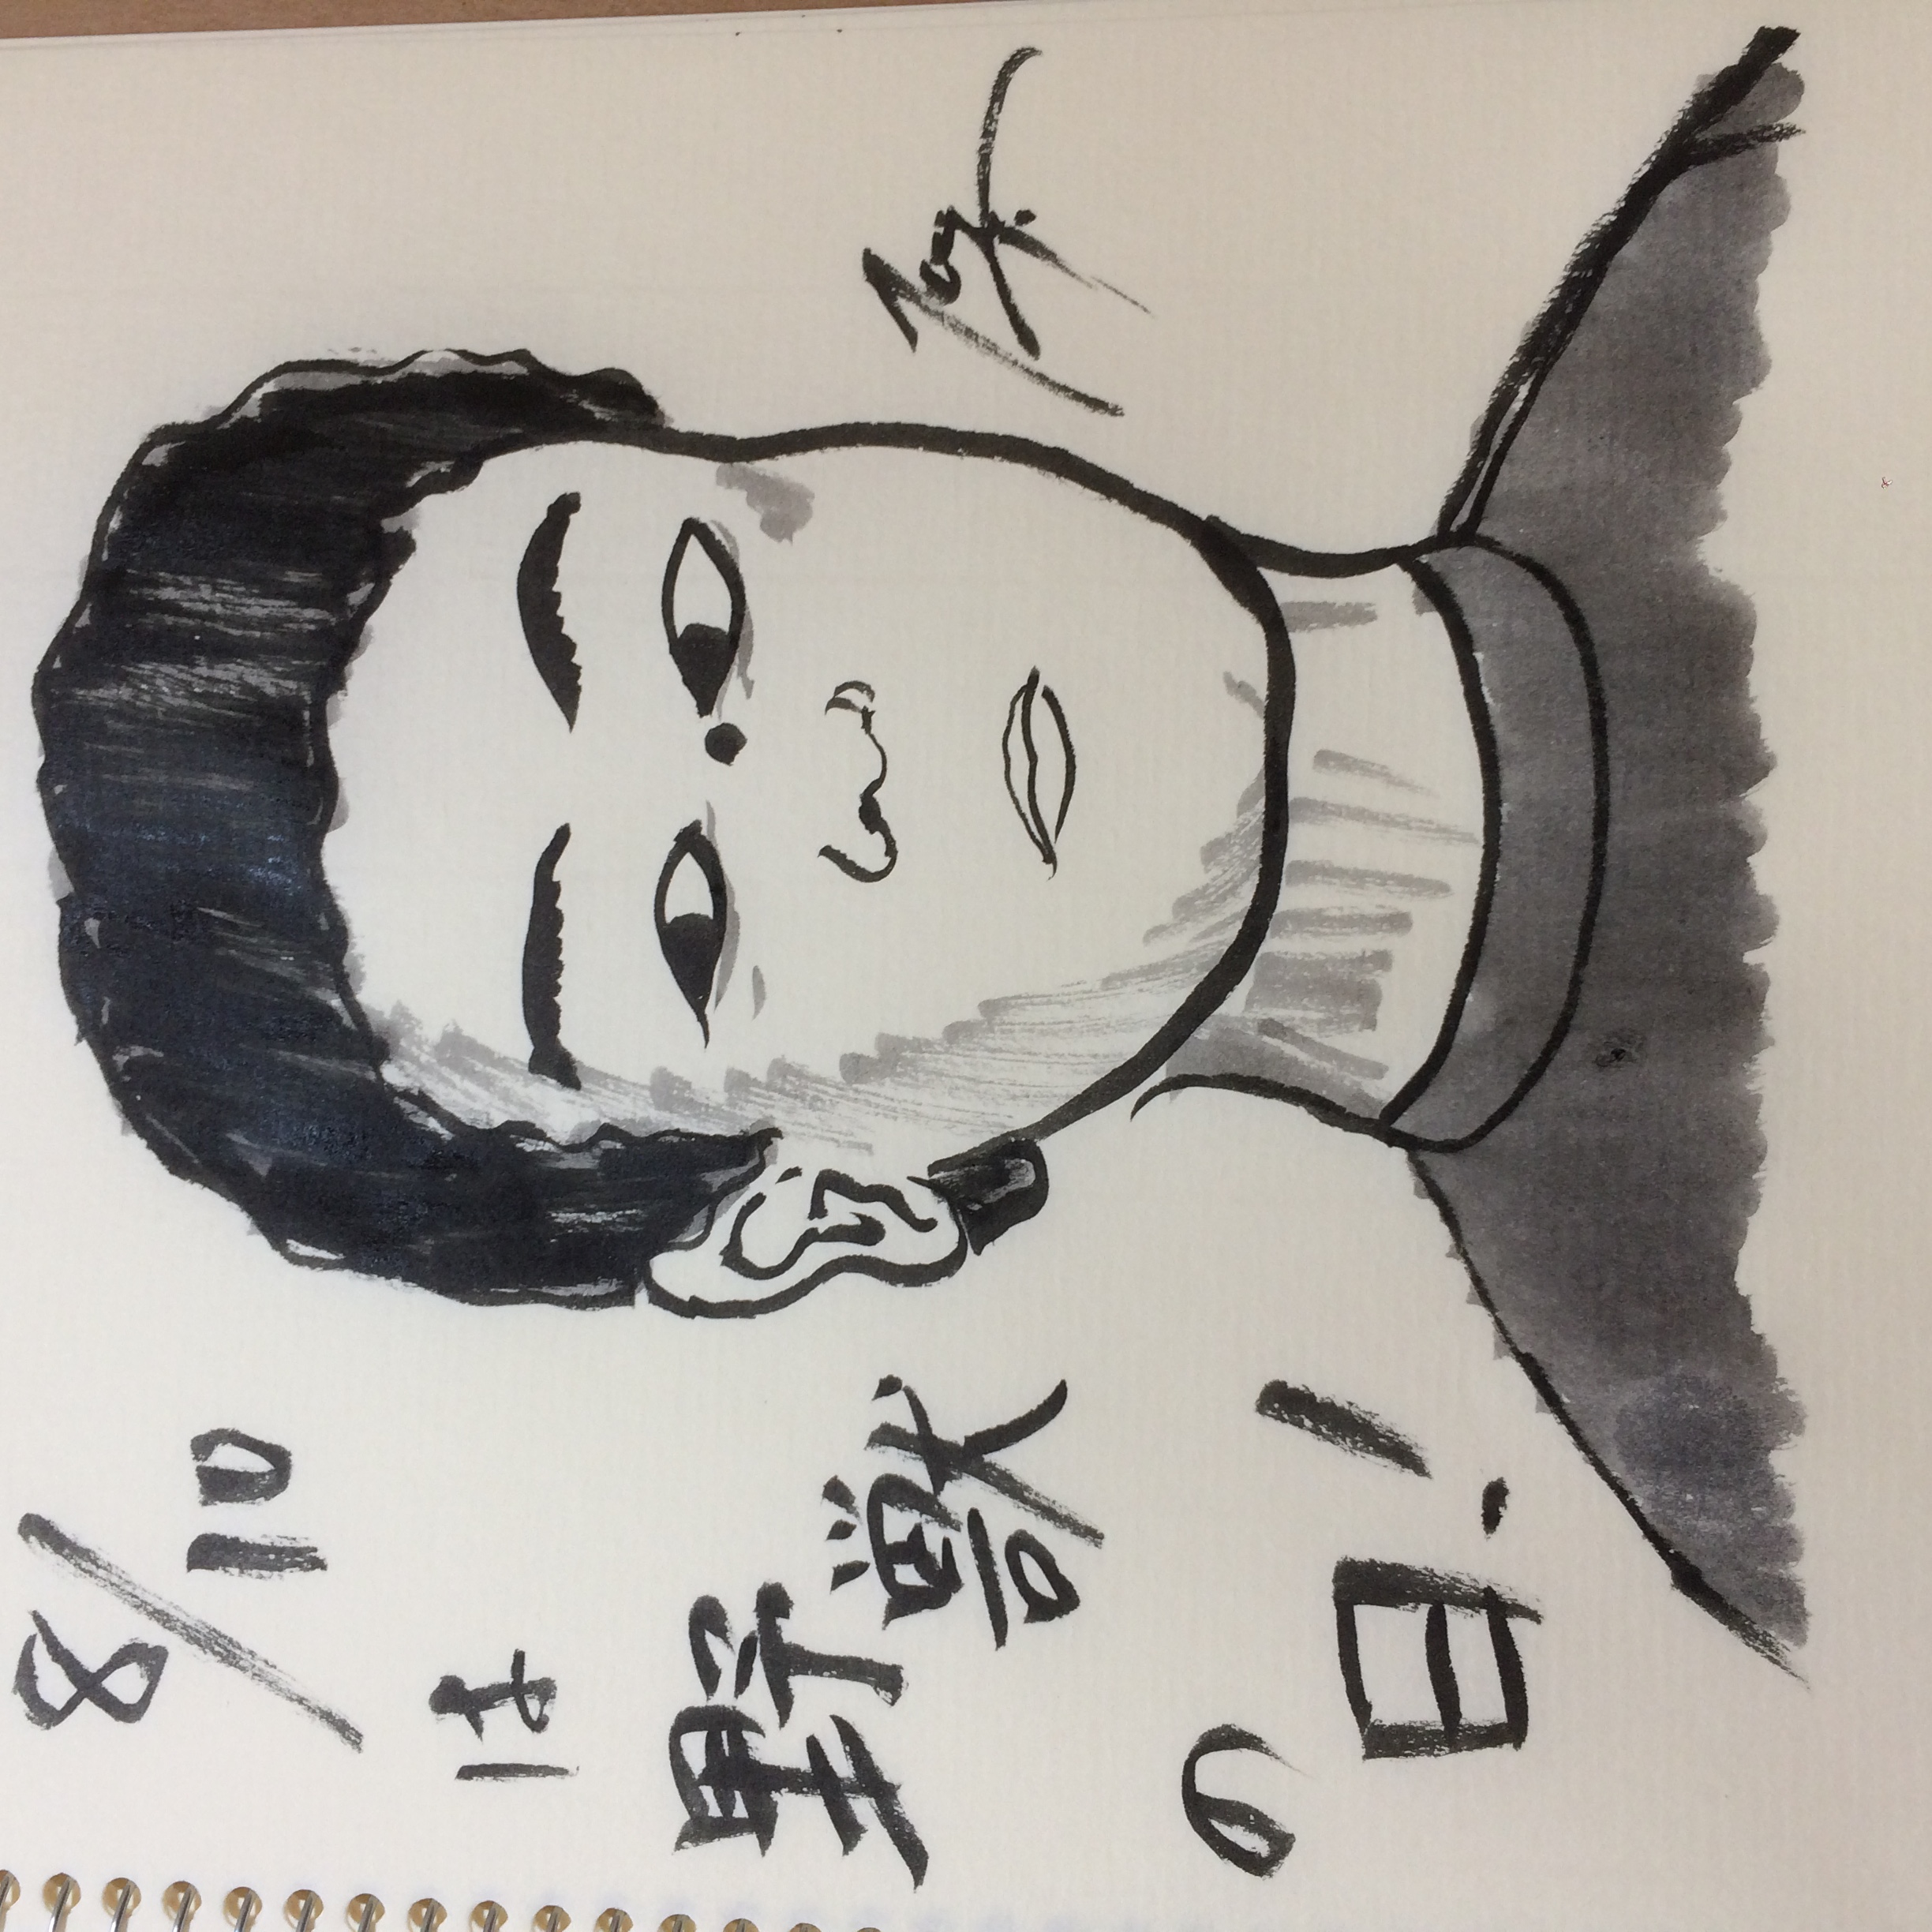 8/10
は
野獣
の
日!